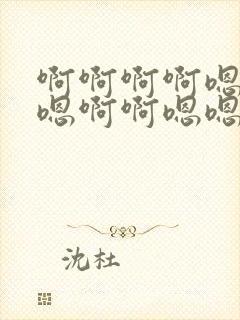 啊啊啊啊嗯
嗯啊啊嗯嗯
沈杜